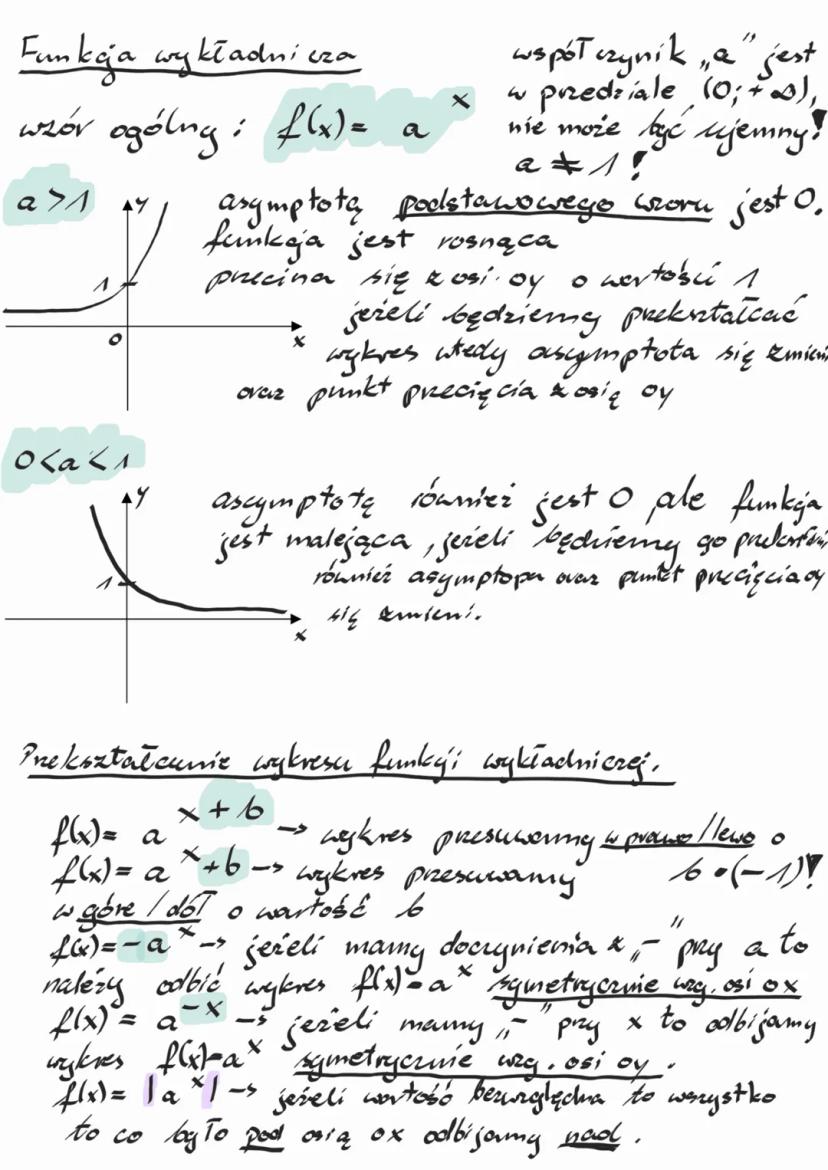 Funkcja wykładnicza
wzór ogólny: f(x)= a^x
współczynik „a" jest
w przedziale (0;+∞),
nie może być ujemny!
a ≠ 1!
a>1
y
1
0
x
asymptotą podstawowego wzoru jest 0.
funkcja jest rosnąca
przecina się z osi oy o wartości 1
jeżeli będziemy przekształcać
wykres wtedy asymptota się zmieni
oraz punkt przecięcia z osią oy
0<a<1
y
1
x
asymptotą również jest 0, ale funkcja
jest malejąca, jeżeli będziemy go
również asymptopa oraz punkt przecięcia oy
się zmieni.
Przekształcenie wykresu funkcji wykładniczej.
f(x)= a^(x+b) -> wykres przesuwamy w prawo/lewo o
b•(-1)!
f(x)= a^x+b -> wykres przesuwamy
w górę/dół o wartość b
f(x)=-a^x -> jeżeli mamy doczynienia z „-" przy a to
należy odbić wykres f(x)=a^x symetrycznie wzg. osi ox
f(x)= a^-x -> jeżeli mamy „-" przy x to odbijamy
wykres f(x)=a^x symetrycznie wzg. osi oy.
f(x)= |a^x| -> jeżeli wartość bezwzględna to wszystko
to co było pod osią ox odbijamy nad.